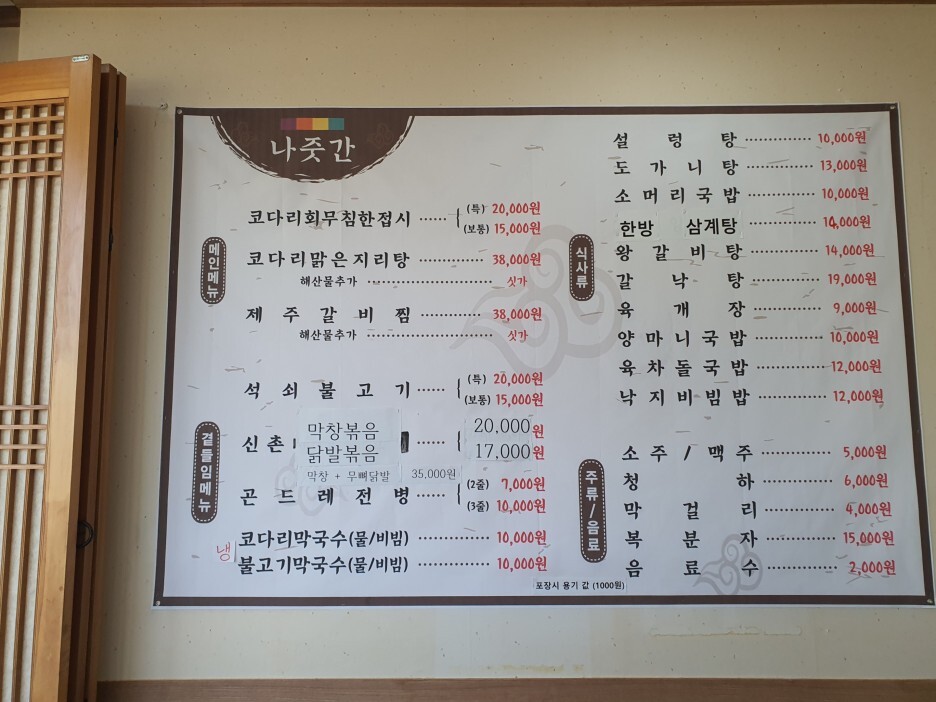 나줏간
메인메뉴
코다리회무침한접시 ······ (특) 20,000원
(보통) 15,000원
코다리맑은지리탕 ············ 38,000원
해산물추가 ···················· 싯가
제주갈비찜 ············ 38,000원
해산물추가 ···················· 싯가
곁들임메뉴
석쇠불고기 ······ (특) 20,000원
(보통) 15,000원
신촌
막창볶음 ······ 20,000원
닭발볶음 17,000원
막창 + 무뼈닭발 35,000원
곤드레전병 ······ (2줄) 7,000원
(3줄) 10,000원
냉
코다리막국수(물/비빔) ············ 10,000원
불고기막국수(물/비빔) ············ 10,000원
식사류
설렁탕 ············ 10,000원
도가니탕 ············ 13,000원
소머리국밥 ············ 10,000원
한방 삼계탕
왕갈비탕 ············ 14,000원
갈낙탕 ············ 19,000원
육개장 ············ 9,000원
양마니국밥 ············ 10,000원
육차돌국밥 ············ 12,000원
낙지비빔밥 ············ 12,000원
주류/음료
소주/맥주 ············ 5,000원
청하 ············ 6,000원
막걸리 ············ 4,000원
복분자 ············ 15,000원
음료수 ············ 2,000원
포장시 용기 값 (1000원)